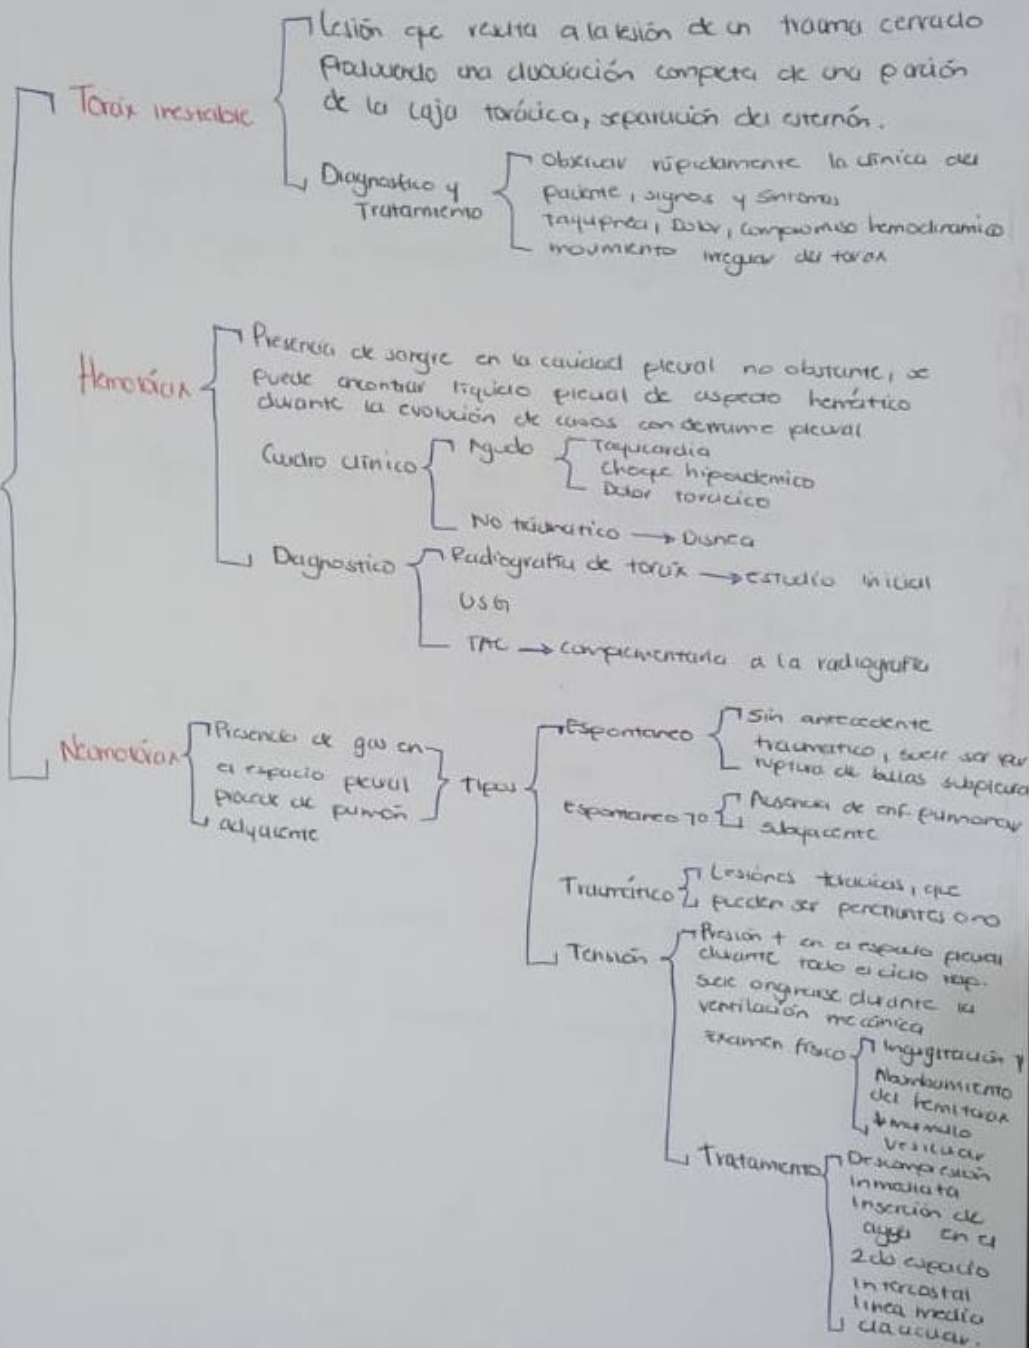 Torax inestable
Lesión que resulta a la lesión de un trauma cerrado
Produciendo una disociación completa de una porción
de la caja torácica, separación del esternón.
Diagnostico y
Tratamiento
Observar rápidamente la clínica del
paciente, signos y sintomas
Taquipnea, Dolor, compromiso hemodinamico
movimiento irregular del torax
Hemotórax
Presencia de sangre en la cavidad pleural no obstante, se
puede encontrar líquido pleural de aspecto hemático
durante la evolución de casos con derrame pleural
Cuadro clínico
Agudo
Taquicardia
Choque hipovolemico
Dolor toracico
No traumatico → Disnea
Diagnostico
Radiografía de torax → estudio inicial
USG
TAC → complementaria a la radiografía
Neumotórax
Presencia de gas en
el espacio pleural
procede de pumón
adyacente
Tipos
Espontaneo
Sin antecedente
traumatico, suele ser por
ruptura de bullas subpleura
Espontaneo 1o
Ausencia de enf. pulmonar
subyacente
Traumático
Lesiónes toracicas, que
pueden ser penetrantes o no
Tensión
Presión + en el espacio pleural
durante todo el ciclo resp.
suele originarse durante la
ventilación mecánica
Examen físico
Ingurgitación y
Abombamiento
del hemitorax
↓ murmullo
vesicular
Tratamiento
Descompresión
inmediata
Inserción de
aguja en el
2do espacio
intercostal
linea media
clavicular.